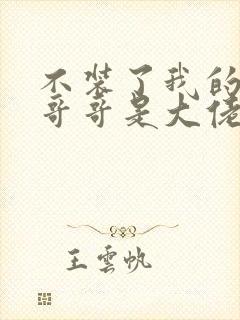 不装了我的
哥哥是大佬
王云帆